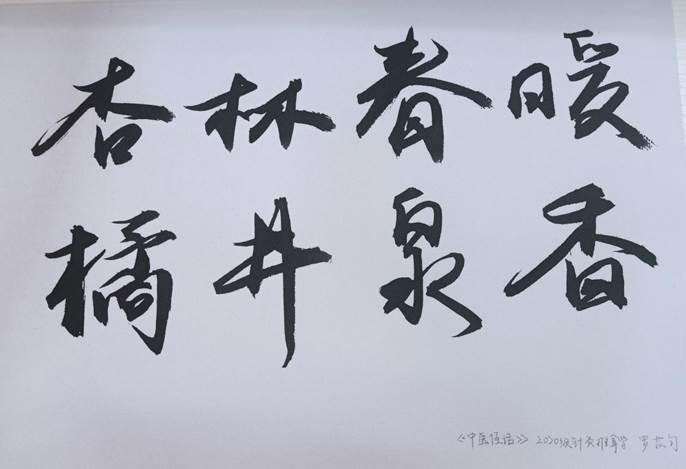 杏林春暖
橘井泉香
《中医经话》 2020级针灸推拿学 罗